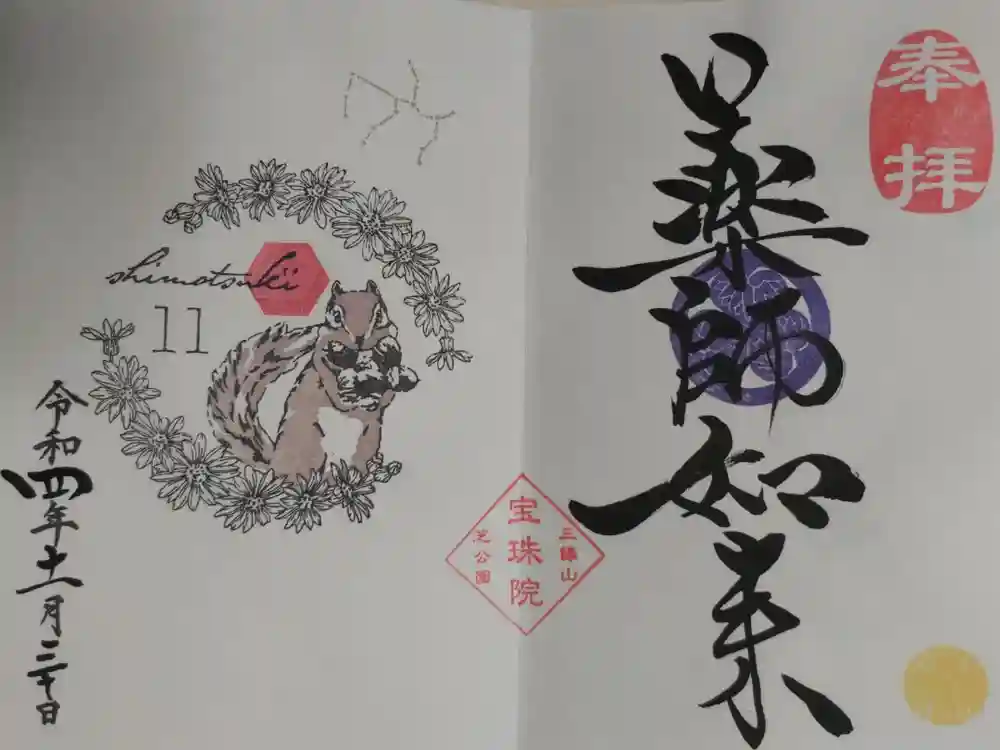 奉拝
薬師如来
三縁山
宝珠院
芝公園
shimotsuki
11
令和四年十一月三十日